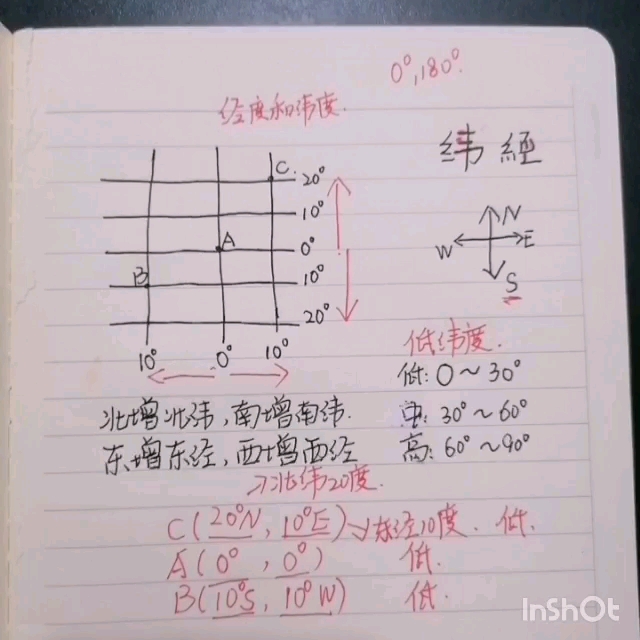 0°,180°.
经度和纬度.
緯 經
C.
20°
10°
A
0°
B
10°
20°
10° 0° 10°
N
W E
S
低纬度.
低: 0～30°
中: 30°～60°
高: 60°～90°
北增北纬,南增南纬.
东增东经,西增西经
北纬20度.
C(20°N, 10°E) 东经10度. 低.
A(0°, 0°) 低.
B(10°S, 10°W) 低.
InShOt